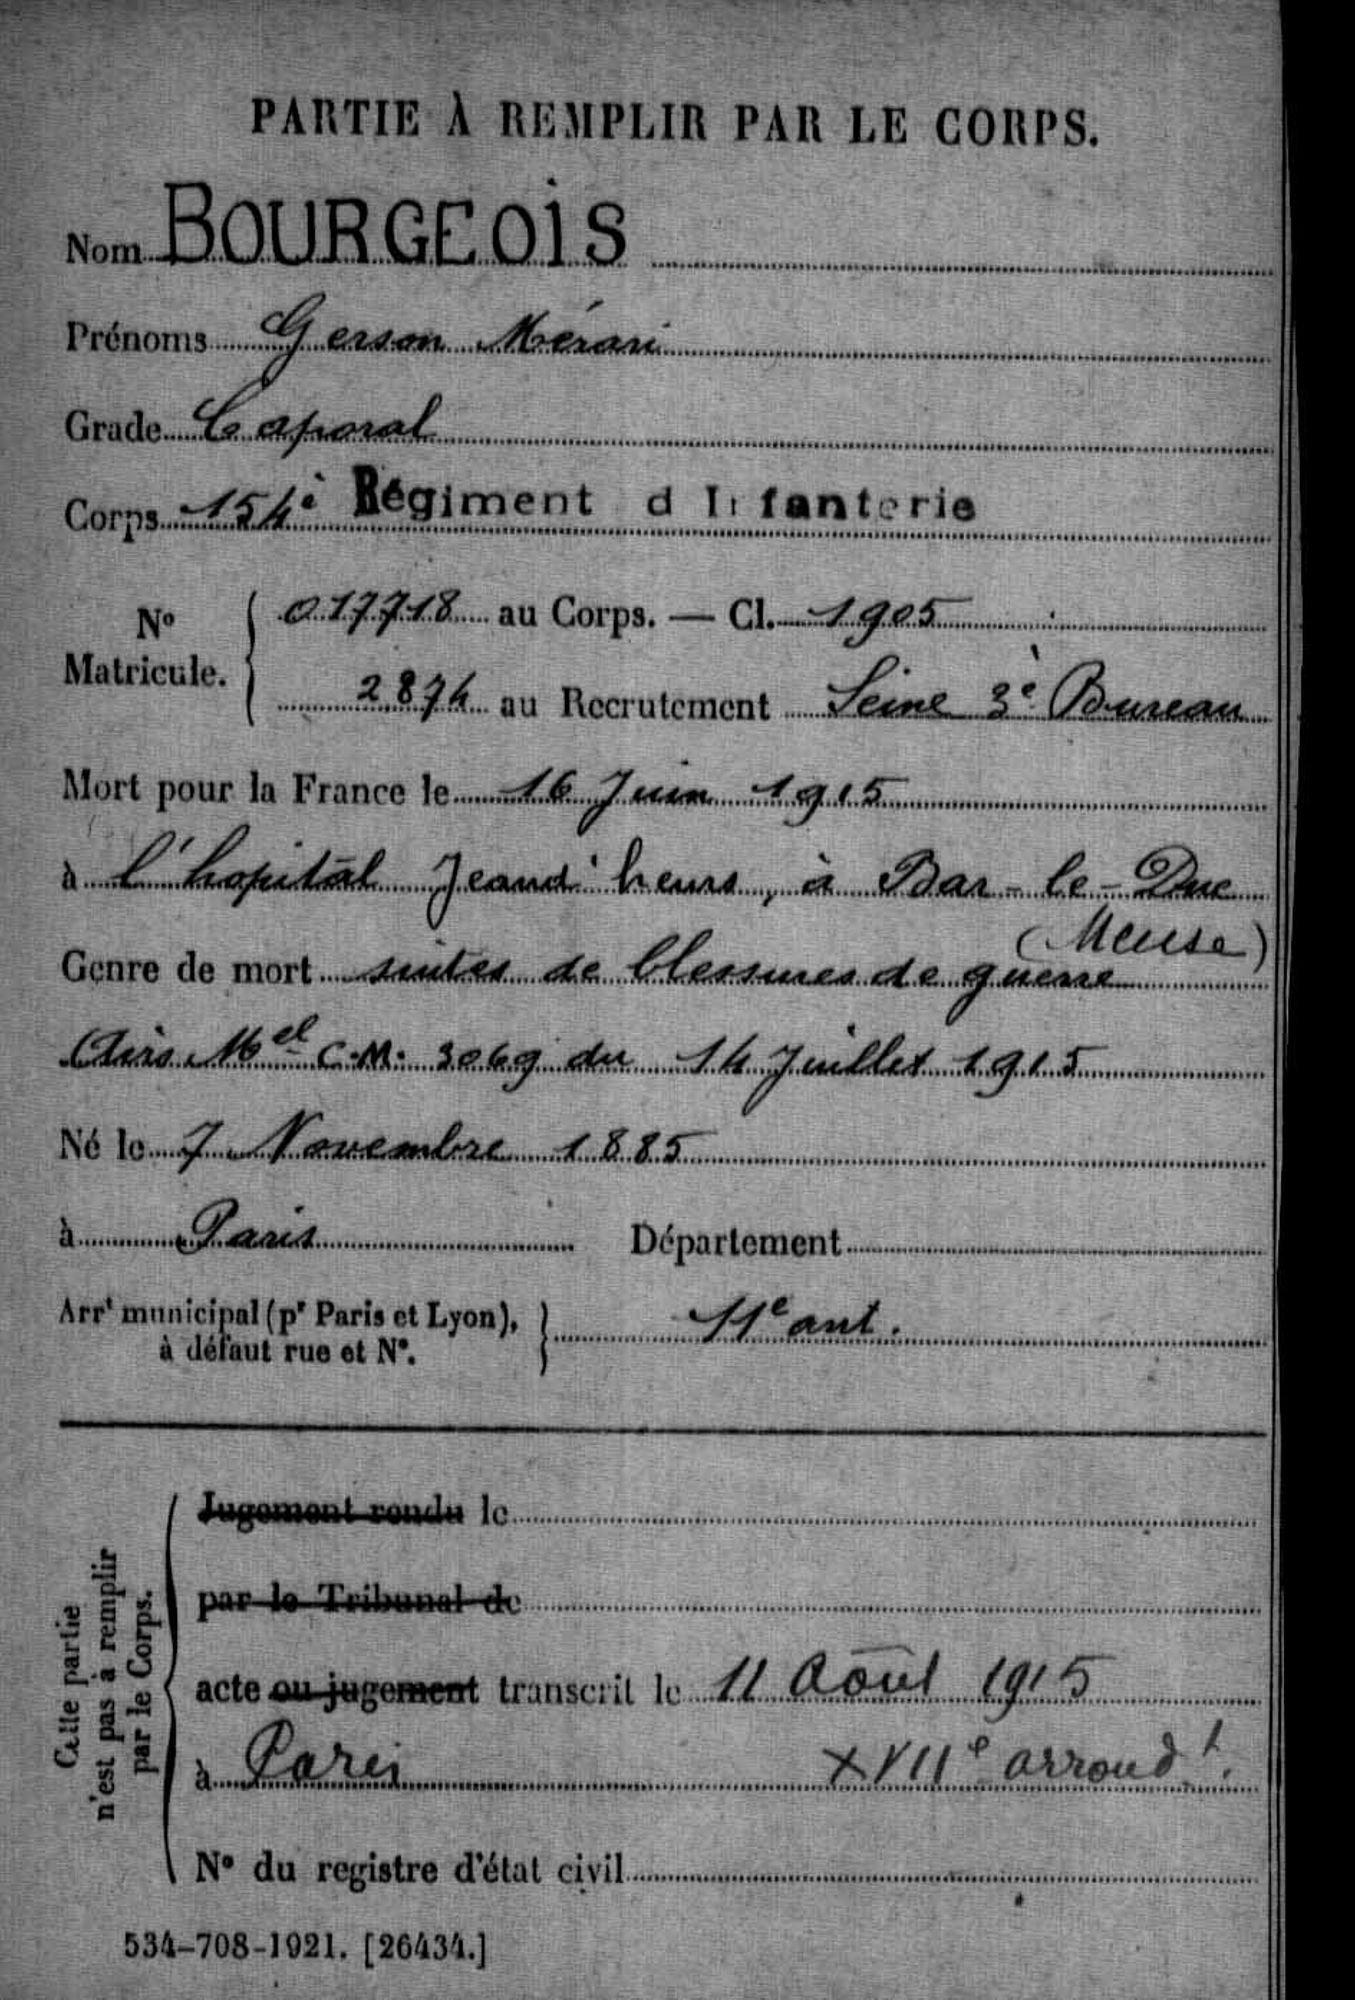 PARTIE À REMPLIR PAR LE CORPS.
Nom BOURGEOIS
Prénoms Gerson Mérari
Grade Caporal
Corps 154è Régiment d Infanterie
N° Matricule. 017718 au Corps. — Cl. 1905
2874 au Recrutement Seine 3è Bureau
Mort pour la France le 16 Juin 1915
à l'hopital Jeand'heurs, à Bar-le-Duc
(Meuse)
Genre de mort suites de blessures de guerre
Avis Mel C.M. 3069 du 14 Juillet 1915
Né le 7 Novembre 1885
à Paris Département
Arrt municipal (pr Paris et Lyon), à défaut rue et N°. 11e arrt.
Jugement rendu le
par le Tribunal de
acte ou jugement transcrit le 11 Août 1915
à Paris XVIIe arrondt.
N° du registre d'état civil
Cette partie
n'est pas à remplir
par le Corps.
534-708-1921. [26434.]